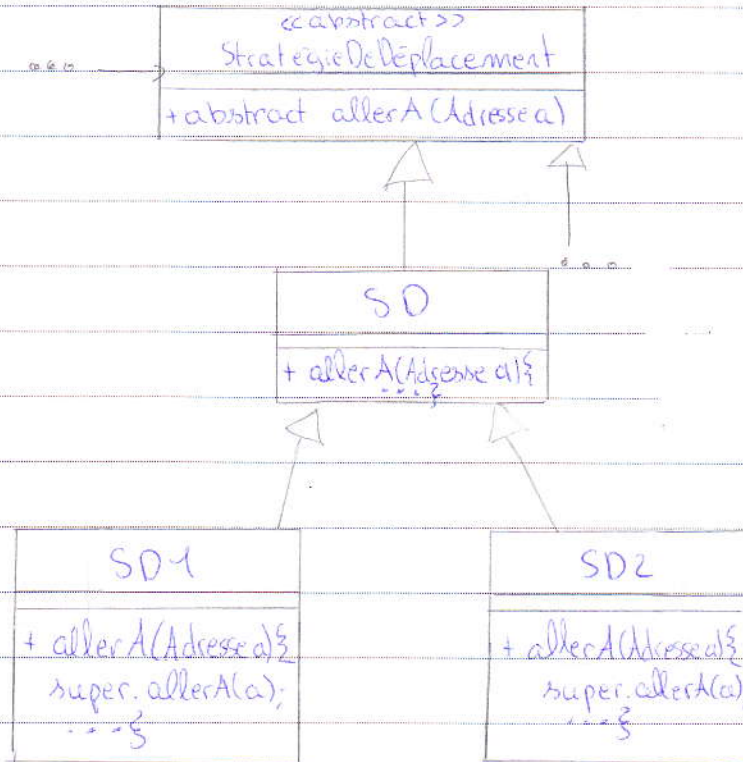 <<abstract>>
StratégieDeDéplacement
+ abstract allerA(Adresse a)
SD
+ allerA(Adresse a){
...}
SD1
SD2
+ allerA(Adresse a){
super.allerA(a);
...}
+ allerA(Adresse a){
super.allerA(a)
...}